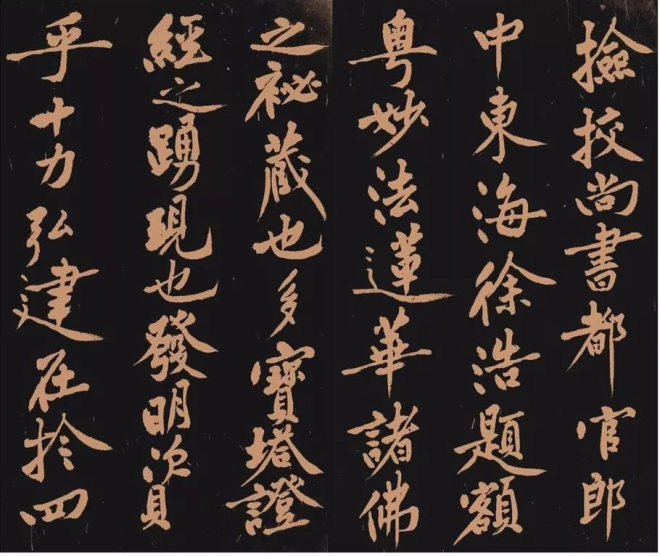 撿挍尚書都官郎
中東海徐浩題額
粤妙法蓮華諸佛
之祕蔵也多寶塔證
經之踴現也發明資
乎十力弘建在於四